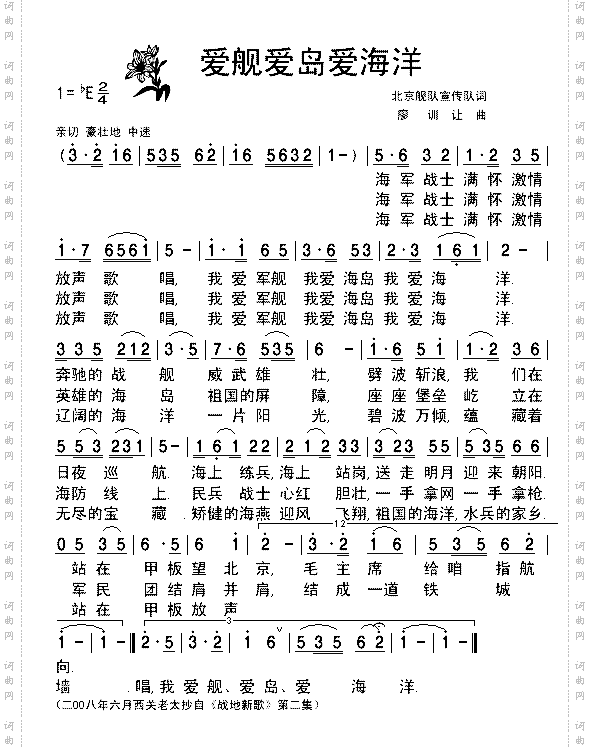 爱舰爱岛爱海洋
1=ᵇE 2/4
北京舰队宣传队词
廖训让曲
亲切 豪壮地 中速
(3·2 16|535 62|16 5632|1-)|5·6 32|1·2 35|
海军战士满怀激情
海军战士满怀激情
海军战士满怀激情
1·7 6561|5-|1·1 65|3·6 53|2·3 161|2-|
放声歌唱,我爱军舰我爱海岛我爱海洋.
放声歌唱,我爱军舰我爱海岛我爱海洋.
放声歌唱,我爱军舰我爱海岛我爱海洋.
335 212|3·5|7·6 535|6-|1·6 51|1·2 36|
奔驰的战舰威武雄壮,劈波斩浪,我们在
英雄的海岛祖国的屏障,座座堡垒屹立在
辽阔的海洋一片阳光,碧波万倾,蕴藏着
553 231|5-|161 22|122 35|3·3 23|535 66|
日夜巡航.海上练兵,海上站岗,送走明月迎来朝阳.
海防线上.民兵战士心红胆壮,一手拿网一手拿枪.
无尽的宝藏.矫健的海燕迎风飞翔,祖国的海洋,水兵的家乡.
12
05 35|6·5|6 1|2-|3·2|16|535 62|
站在甲板望北京,毛主席给咱指航
军民团结肩并肩,结成一道铁城
站在甲板放声
3
1-|1-:|2·5|3·2|1 6|535 62|1-|1-‖
向.
墙.唱,我爱舰、爱岛、爱海洋.
(二00八年六月西关老太抄自《战地新歌》第二集)
词曲网